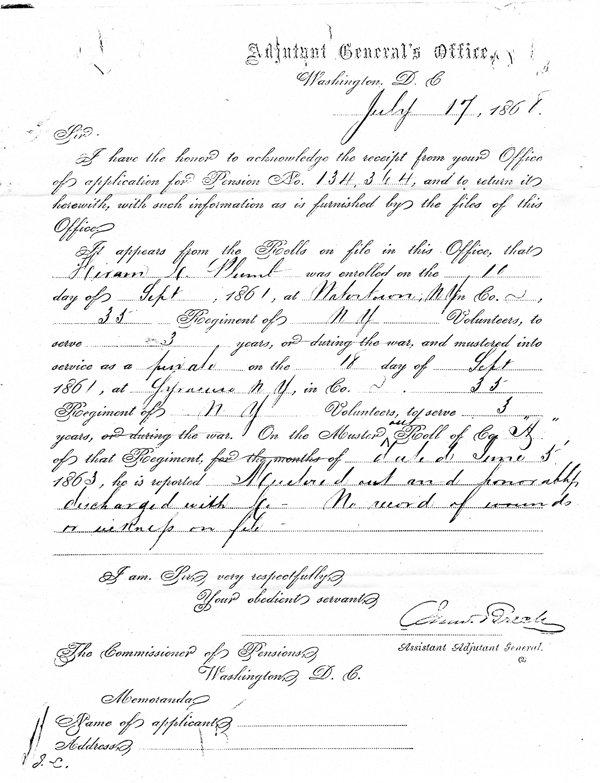 Adjutant General's Office,
Washington, D. C.
July 17, 1868.
Sir:
I have the honor to acknowledge the receipt from your Office
of application for Pension No. 134,364, and to return it
herewith, with such information as is furnished by the files of this
Office.
It appears from the Rolls on file in this Office, that
Hiram Plumb was enrolled on the
day of Sept, 1861, at Watertown, N.Y. in Co. ~,
35 Regiment of N Y Volunteers, to
serve 3 years, or during the war, and mustered into
service as a private on the 18 day of Sept
1861, at Syracuse N Y, in Co. ~. 35
Regiment of N Y Volunteers, to serve 3
years, or during the war. On the Muster out Roll of Co. "A"
of that Regiment, for the months of dated June 5"
1863, he is reported Mustered out and honorably
discharged with Co - No record of wounds
or sickness on file -
I am, Sir, very respectfully,
Your obedient servant,
Saml Breck
Assistant Adjutant General.
The Commissioner of Pensions,
Washington, D. C.
Memoranda,
Name of applicant,
Address,